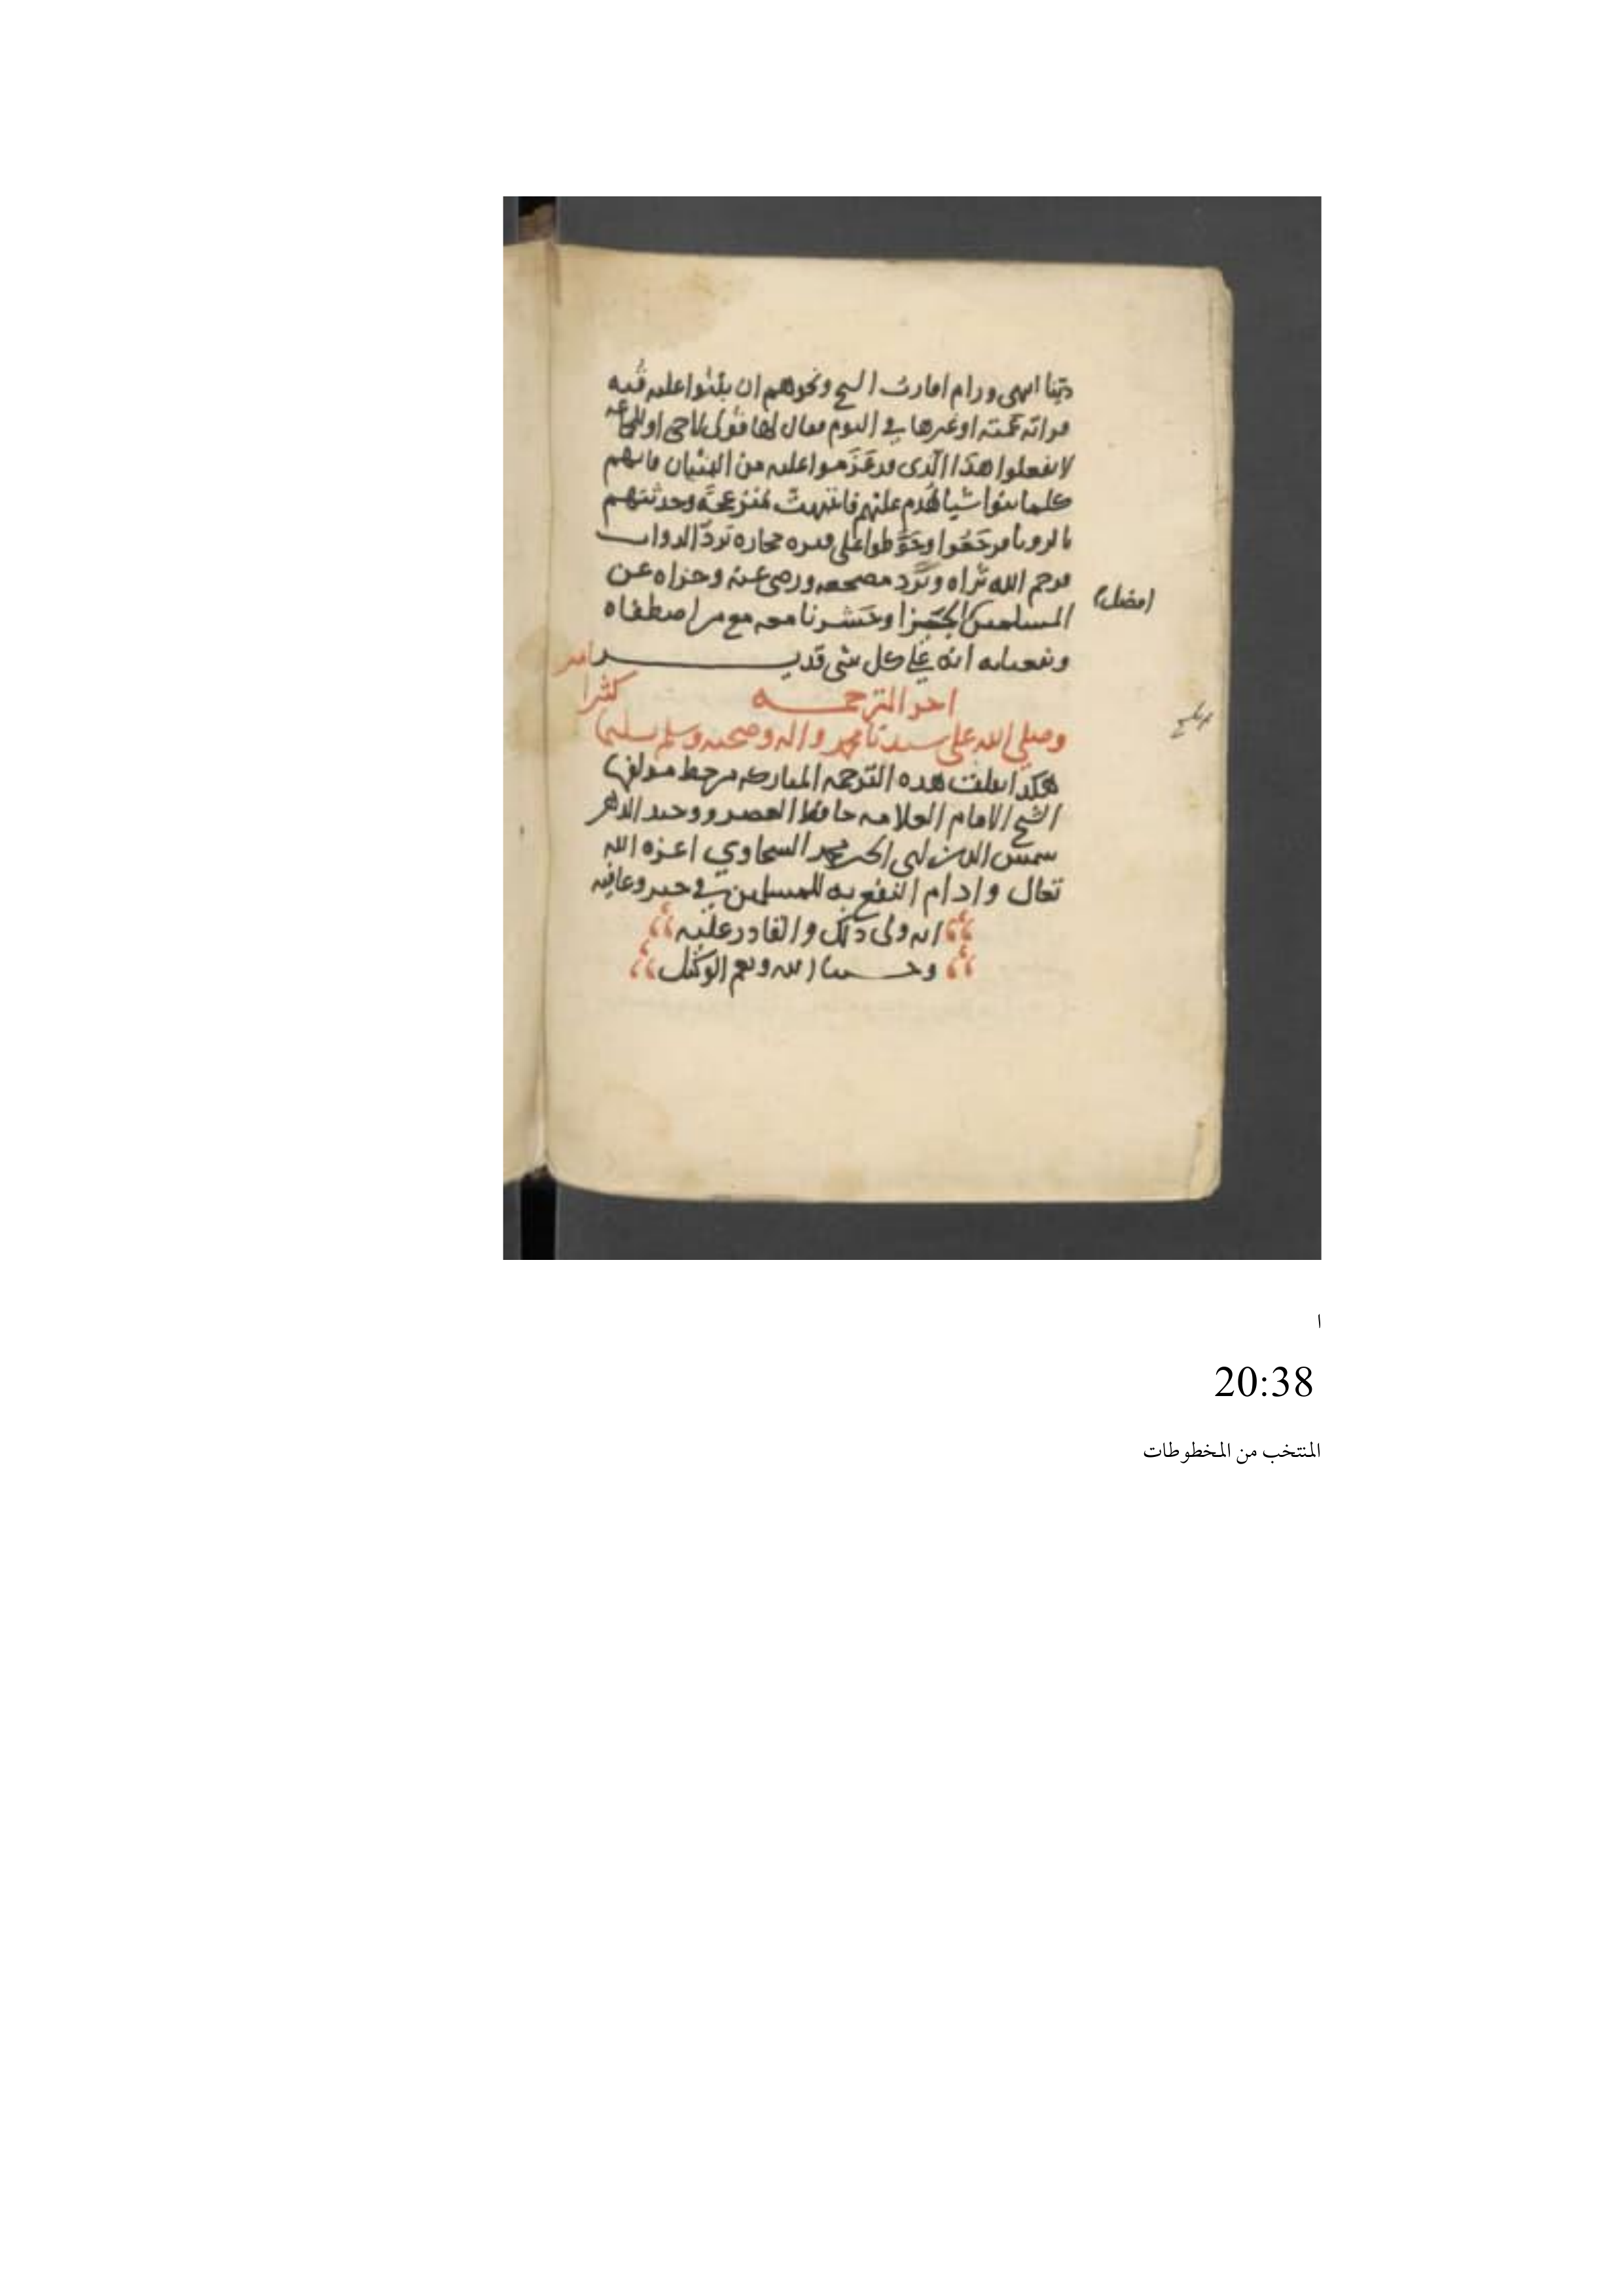 دينا انتهى ورام اقارب الشيخ ونحوهم ان يبنوا عليه قبه
فراته عمته او غيرها في النوم فقال لها قولي لاخي او للجماعه
لا تفعلوا هذا الذي قد عزموا عليه من البنيان فانهم
كلما بنوا شيا هدم عليهم فانتبهت منزعجة وحدثتهم
بالرويا فرجعوا وحوطوا على قبره حجاره ترد الدواب
فرحم الله ثراه وبرد مضجعه ورضي عنه وجزاه عن
(افضل)
المسلمين الجزا وحشرنا معه مع من اصطفاه
ونفعنا به انه على كل شي قدير امين
اخر الترجمه
وصلى الله على سيدنا محمد واله وصحبه وسلم تسليما كثيرا
هكذا نقلت هذه الترجمه المباركه من خط مولفها
الشيخ الامام العلامه حافظ العصر ووحيد الدهر
شمس الدين ابي الخير محمد السخاوي اعزه الله
تعالى وادام النفع به للمسلمين في خير وعافيه
انه ولى ذلك والقادر عليه
وحسبنا الله ونعم الوكيل
ا
20:38
المنتخب من المخطوطات